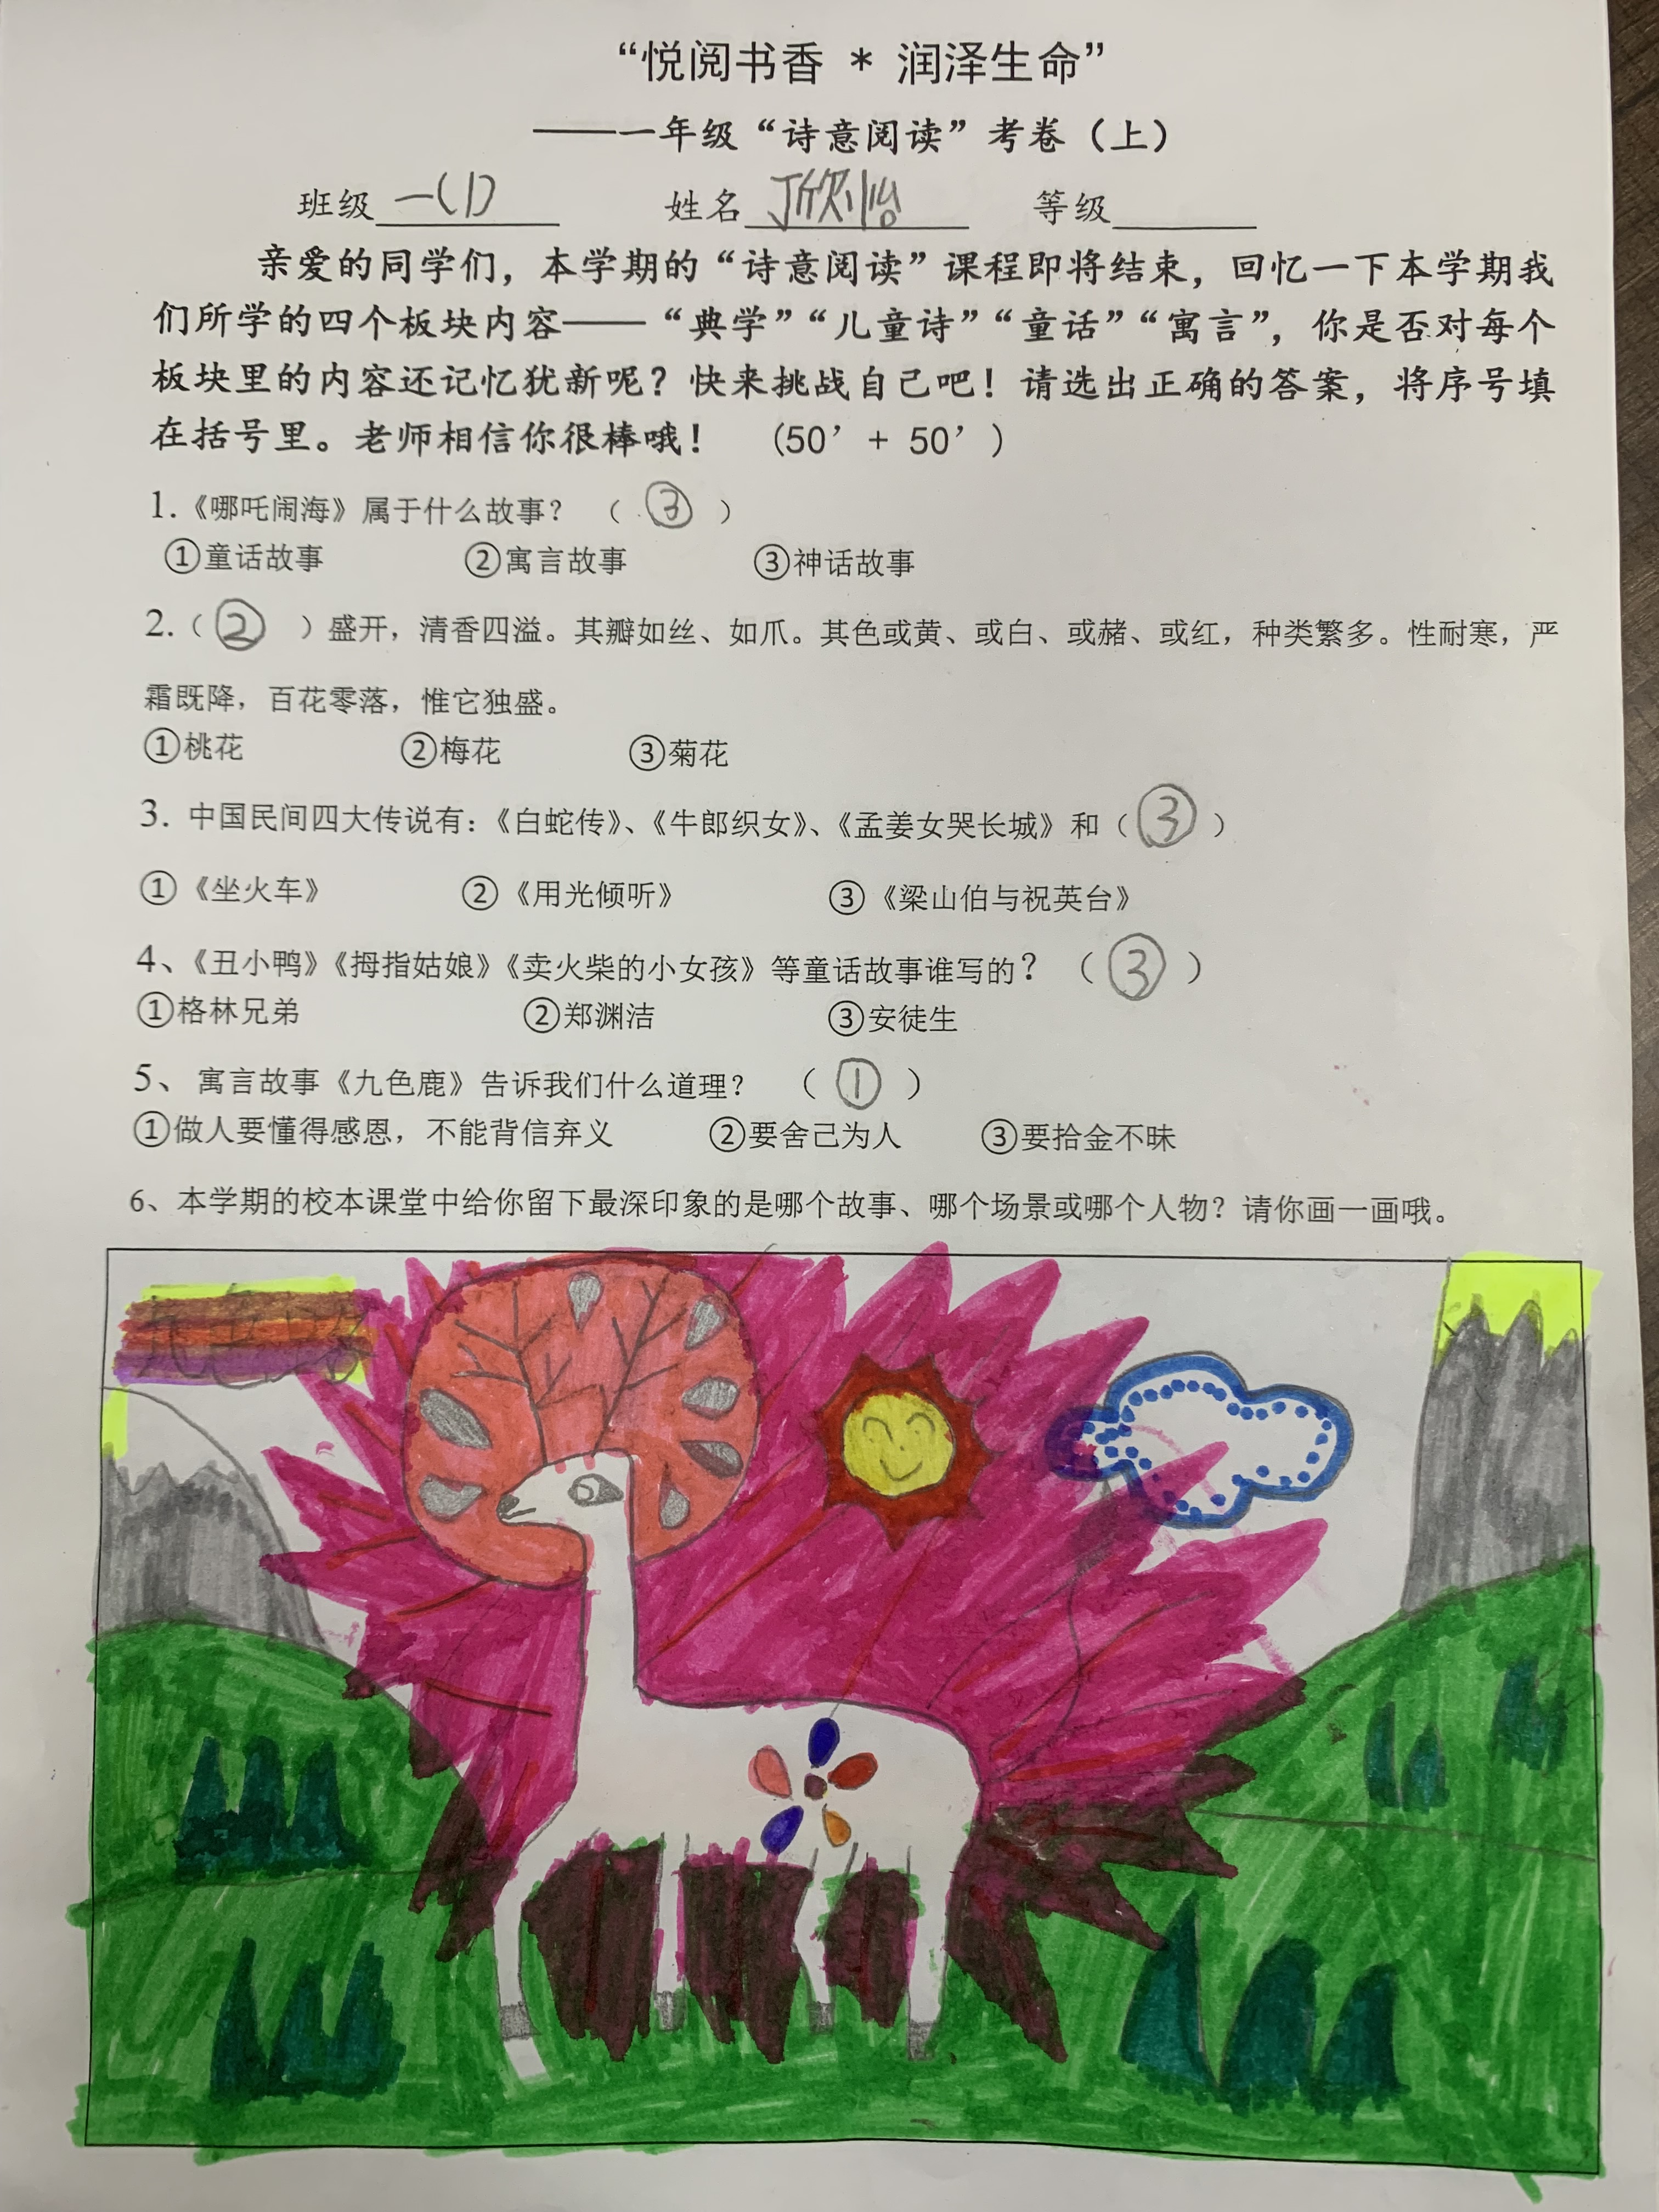 “悦阅书香 * 润泽生命”
——一年级“诗意阅读”考卷（上）
班级 一(1) 姓名 丁欣怡 等级
亲爱的同学们，本学期的“诗意阅读”课程即将结束，回忆一下本学期我
们所学的四个板块内容——“典学”“儿童诗”“童话”“寓言”，你是否对每个
板块里的内容还记忆犹新呢？快来挑战自己吧！请选出正确的答案，将序号填
在括号里。老师相信你很棒哦！ （50’+ 50’）
1.《哪吒闹海》属于什么故事？ （ ③ ）
①童话故事 ②寓言故事 ③神话故事
2.（ ② ）盛开，清香四溢。其瓣如丝、如爪。其色或黄、或白、或赭、或红，种类繁多。性耐寒，严
霜既降，百花零落，惟它独盛。
①桃花 ②梅花 ③菊花
3. 中国民间四大传说有：《白蛇传》、《牛郎织女》、《孟姜女哭长城》和（ ③ ）
①《坐火车》 ②《用光倾听》 ③《梁山伯与祝英台》
4、《丑小鸭》《拇指姑娘》《卖火柴的小女孩》等童话故事谁写的？ （ ③ ）
①格林兄弟 ②郑渊洁 ③安徒生
5、 寓言故事《九色鹿》告诉我们什么道理？ （ ① ）
①做人要懂得感恩，不能背信弃义 ②要舍己为人 ③要拾金不昧
6、本学期的校本课堂中给你留下最深印象的是哪个故事、哪个场景或哪个人物？请你画一画哦。
九色鹿